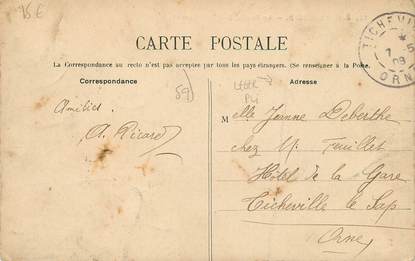 95 €
TICHEVILLE
*
7 - 5
09
ORNE
CARTE POSTALE
La Correspondance au recto n'est pas acceptée par tous les pays étrangers. (Se renseigner à la Poste.
Correspondance
Adresse
59
Amitiés
A. Ricard
Melle Jeanne Deberthe
chez M. Feuillet
Hôtel de la Gare
Ticheville le Sap
Orne